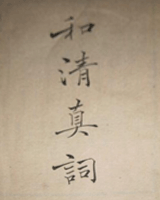 和清真詞